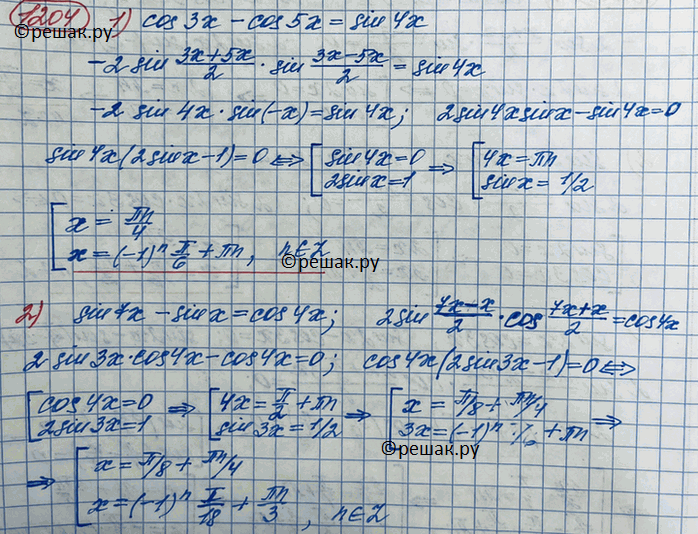 1204 1) cos 3x - cos 5x = sin 4x
©решак.ру
-2 sin (3x+5x)/2 · sin (3x-5x)/2 = sin 4x
-2 sin 4x · sin(-x) = sin 4x; 2 sin 4x sin x - sin 4x = 0
sin 4x (2 sin x - 1) = 0 <=> [ sin 4x = 0 => [ 4x = πn
2 sin x = 1 sin x = 1/2
[ x = πn/4
x = (-1)ⁿ π/6 + πn, n∈Z
©решак.ру
2) sin 7x - sin x = cos 4x; 2 sin (7x-x)/2 · cos (7x+x)/2 = cos 4x
2 sin 3x · cos 4x - cos 4x = 0; cos 4x (2 sin 3x - 1) = 0 <=>
[ cos 4x = 0 => [ 4x = π/2 + πn => [ x = π/8 + πn/4
2 sin 3x = 1 sin 3x = 1/2 3x = (-1)ⁿ · π/6 + πn =>
©решак.ру
=> [ x = π/8 + πn/4
x = (-1)ⁿ π/18 + πn/3, n∈Z
©решак.ру